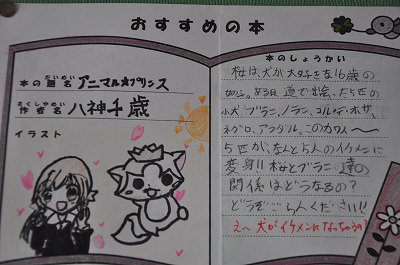 おすすめの本
本の題名 だいめい アニマル☆プリンス
作者名 さくしゃめい 八神千歳
イラスト
本のしょうかい
桜は、犬が大好きな16歳の
女の子。ある日道で出会った5匹の
小犬 ブラン、ノラン、コルサ・ホサ、
ネグロ、アスダル。このカワイ〜
5匹が、なんと5人のイケメンに
変身!!桜とブラン達の
関係はどうなるの?
どうぞごらんください!!
え〜犬がイケメンになっちゃうの?